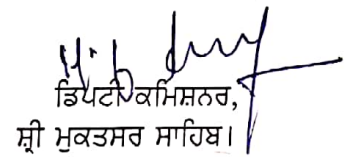 ਡਿਪਟੀ ਕਮਿਸ਼ਨਰ,
ਸ਼੍ਰੀ ਮੁਕਤਸਰ ਸਾਹਿਬ।